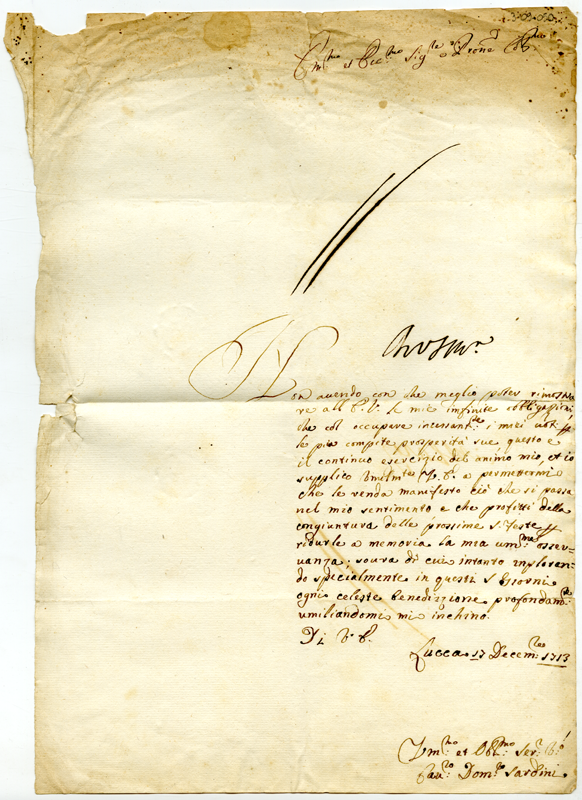 Em:mo et Ecc:mo Sig:re Prone Col:mo
Non avendo con che meglio poter rimostra
re all' E. V. le mie infinite obligazioni
che col occupare incessant:te i miei voti p
le più compite prosperità sue questo e
il continuo esercizio del animo mio, et io
supplico Umilm:te V. E. a permettermi
che le renda manifesto ciò che si passa
nel mio sentimento e che profitti della
congiuntura delle prossime S. feste p
ridurle a memoria la mia um:ma osser-
vanza; sovra di cui intanto imploran-
do specialmente in questi S. Giorni
ogni celeste benedizzione profondam:te
umiliandomi mi inchino.
Di V. E.
Lucca 17 Decem:bre 1713
Um:mo et Obl:mo Ser:
Dom:co Sardini